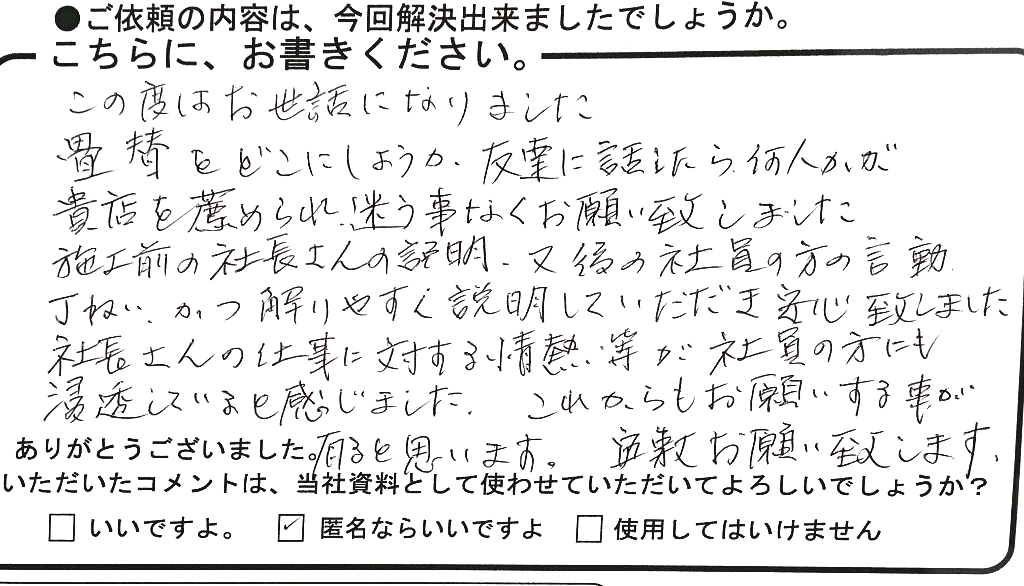 ●ご依頼の内容は、今回解決出来ましたでしょうか。
こちらに、お書きください。
この度はお世話になりました
畳替をどこにしようか、友達に話したら、何人かが
貴店を薦められ、迷う事なくお願い致しました
施工前の社長さんの説明、又後の社員の方の言動、
丁ねい、かつ解りやすく説明していただき安心致しました
社長さんの仕事に対する情熱等が社員の方にも
浸透していると感じました。 これからもお願いする事が
有ると思います。 宜敷お願い致します。
ありがとうございました。
いただいたコメントは、当社資料として使わせていただいてよろしいでしょうか?
□ いいですよ。 ☑ 匿名ならいいですよ □ 使用してはいけません